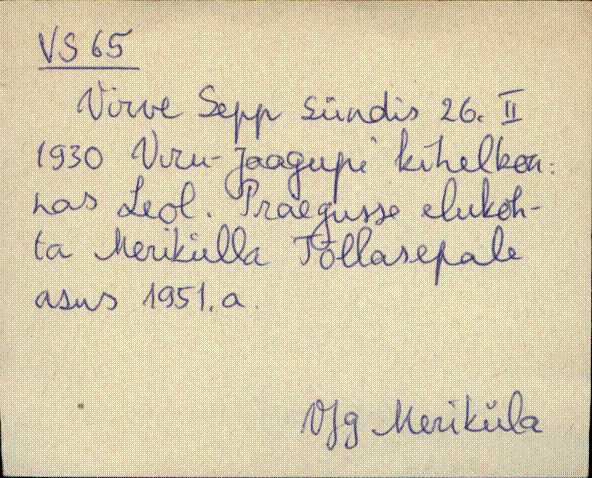 VS 65
Virve Sepp sündis 26. II
1930 Viru-Jaagupi kihelkon-
nas Leol. Praegusse elukoh-
ta Meriküla Tõllasepale
asus 1951. a.
VJg Meriküla